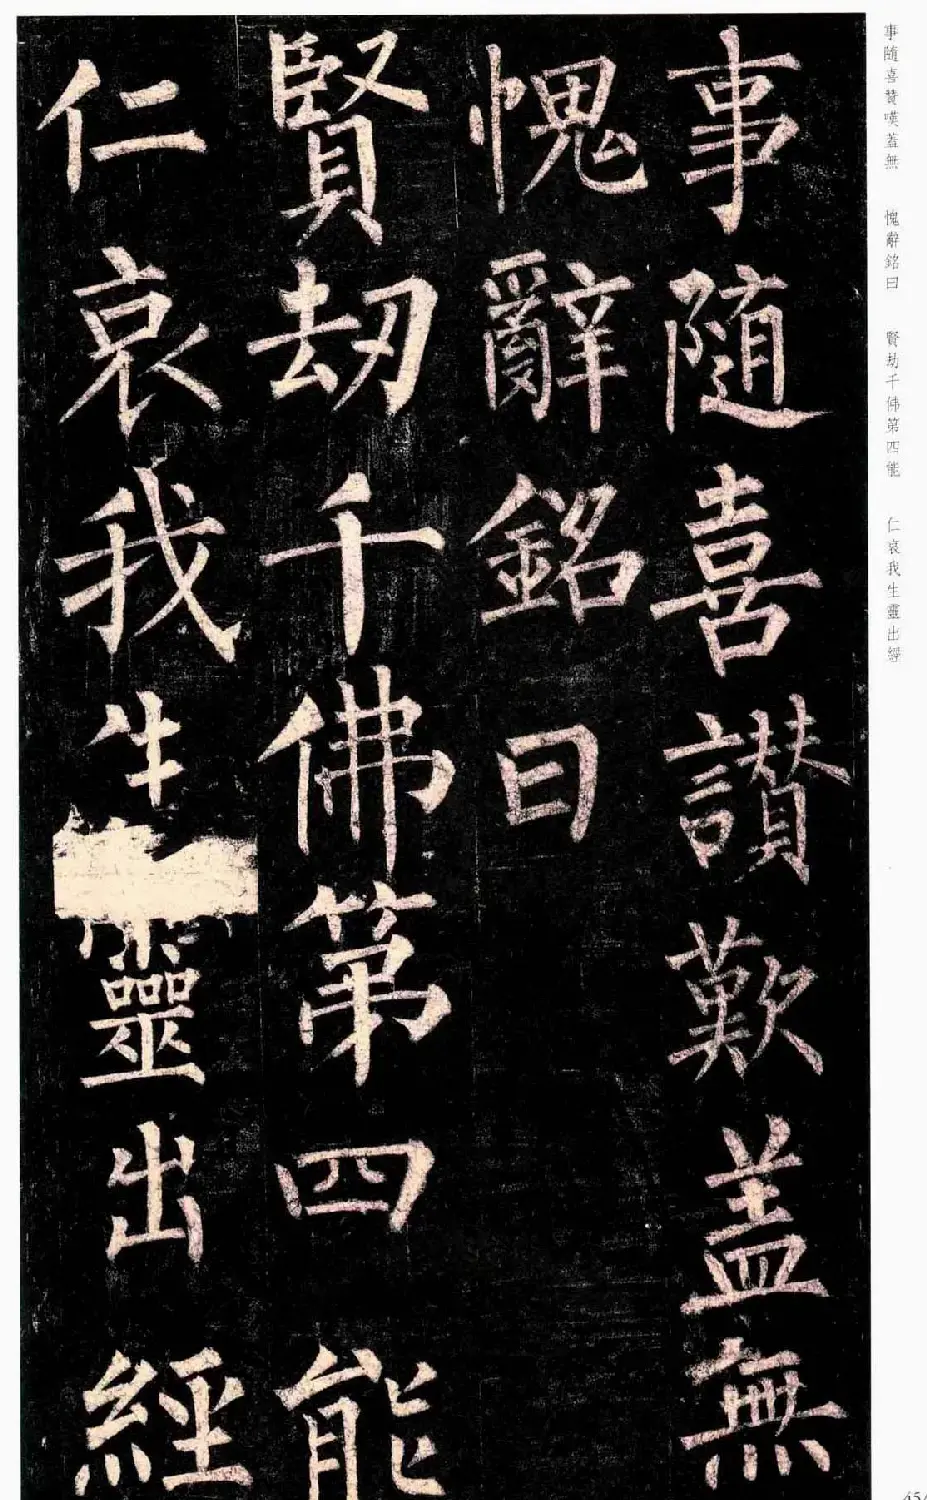 事隨喜讃歎蓋無
愧辭銘曰
賢劫千佛第四能
仁哀我生靈出經
事隨喜贊嘆蓋無　愧辭銘曰　賢劫千佛第四能　仁哀我生靈出經